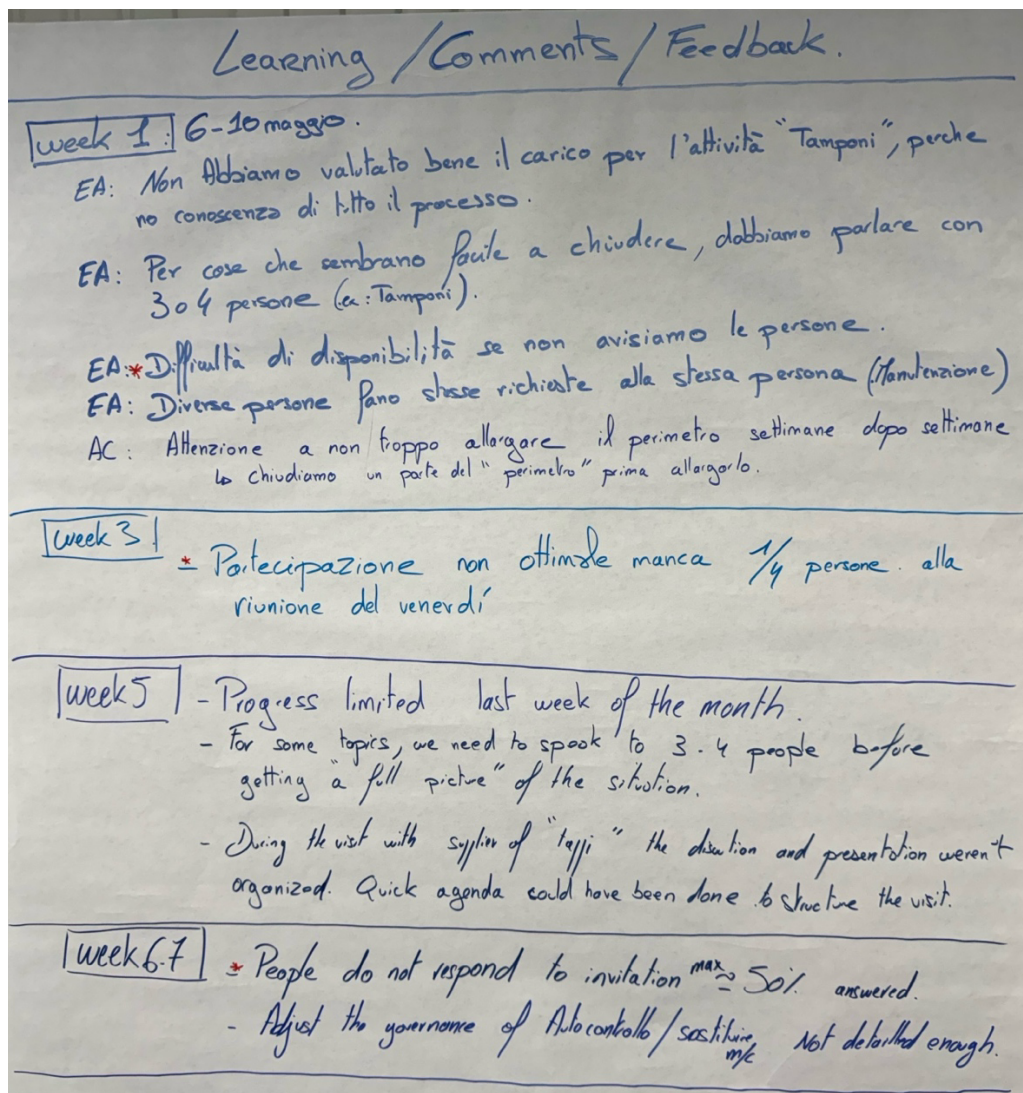 Learning / Comments / Feedback.
week 1: 6-10 maggio.
EA: Non Abbiamo valutato bene il carico per l'attività "Tamponi", perche
no conoscenza di tutto il processo.
EA: Per cose che sembrano facile a chiudere, dobbiamo parlare con
3 o 4 persone (ex: Tamponi).
EA:* Difficultà di disponibilità se non avisiamo le persone.
EA: Diverse persone fano stesse richieste alla stessa persona (Manutenzione)
AC: Attenzione a non troppo allargare il perimetro settimane dopo settimane
↳ chiudiamo un parte del "perimetro" prima allargarlo.
week 3
* Partecipazione non ottimale manca 1/4 persone. alla
riunione del venerdí
week 5
- Progress limited last week of the month.
- For some topics, we need to speak to 3-4 people before
getting "a full picture" of the situation.
- During the visit with supplier of "tappi" the and presentation weren't
organized. Quick agenda could have been done to structure the visit.
week 6.7
* People do not respond to invitation max ≃ 50% answered.
- Adjust the governance of Autocontrollo / m/c Not enough.